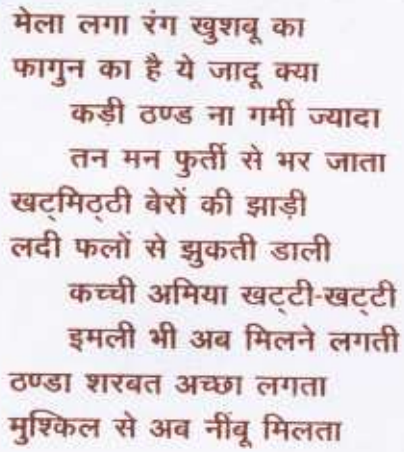 मेला लगा रंग खुशबू का
फागुन का है ये जादू क्या
कड़ी ठण्ड ना गर्मी ज्यादा
तन मन फुर्ती से भर जाता
खट्मिठ्ठी बेरों की झाड़ी
लदी फलों से झुकती डाली
कच्ची अमिया खट्टी-खट्टी
इमली भी अब मिलने लगती
ठण्डा शरबत अच्छा लगता
मुश्किल से अब नींबू मिलता